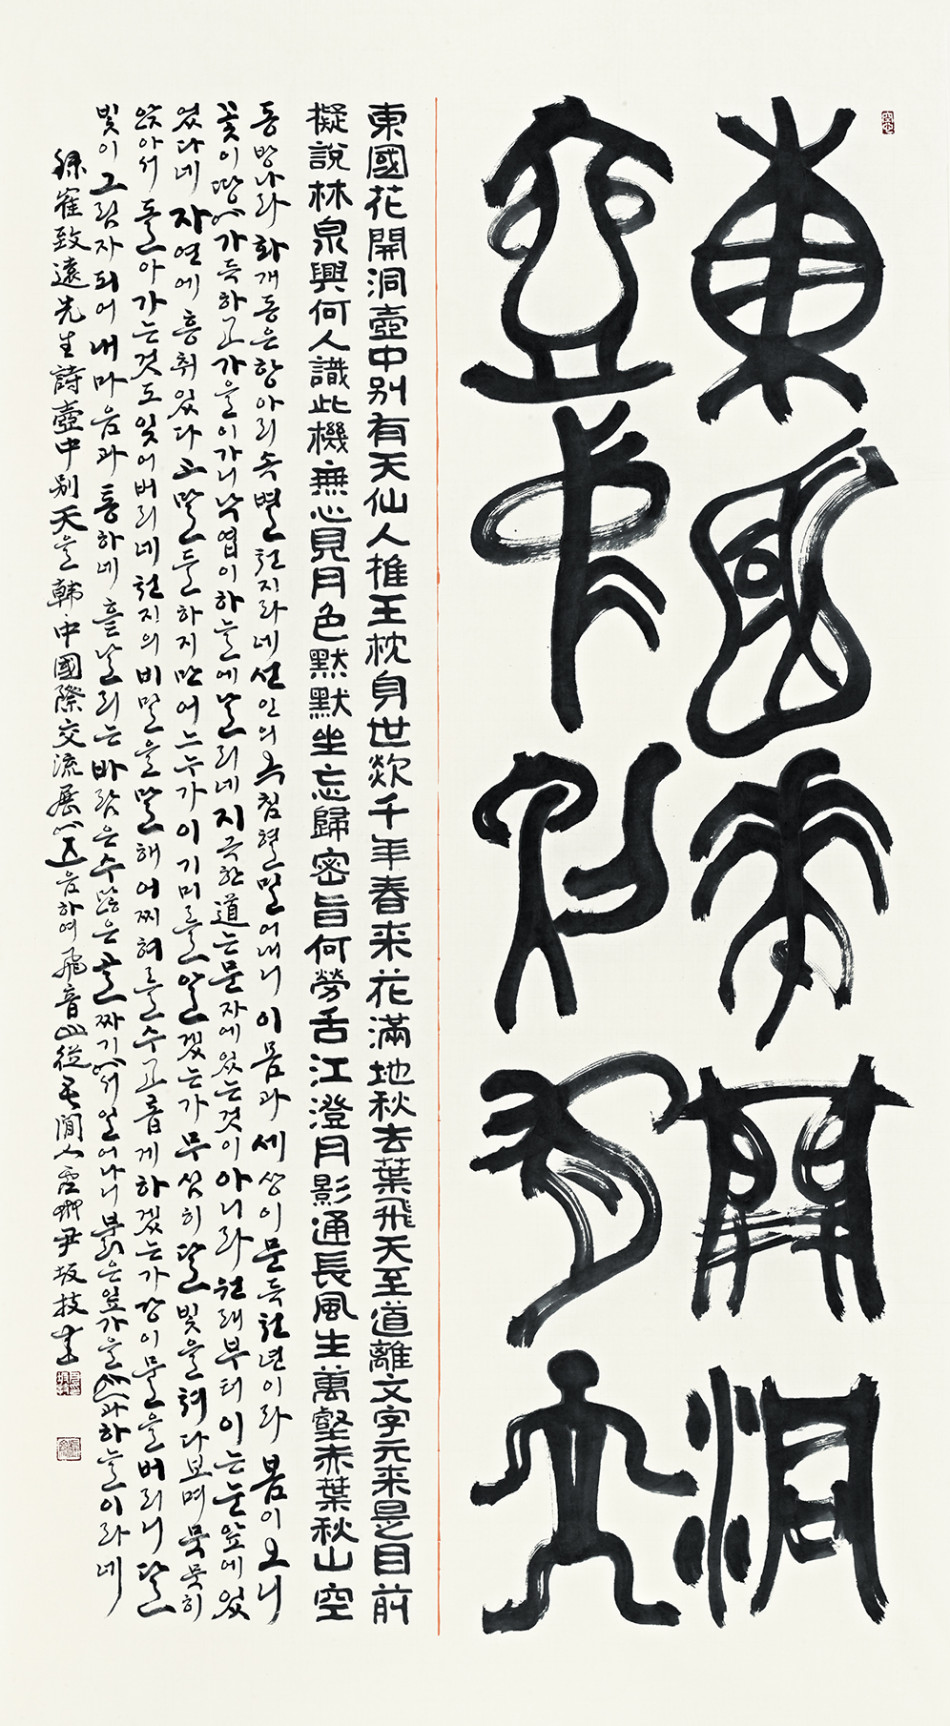 東國花開洞
壺中別有天
東國花開洞壺中别有天仙人推王枕身世欻千年春来花滿地秋去葉飛天至道離文字元来是目前
擬說林泉興何人識此機無心見月色默默坐忘歸密旨何勞舌江澄月影通長風生萬壑赤葉秋山空
동방나라 화개동은 항아리 속 별천지라네 선인의 옥침 밀어내니 이 몸과 세상이 문득 천년이라 봄이 오니
꽃이 땅에 가득하고 가을이 가니 낙엽이 하늘에 날리네 지극한 道는 문자에 있는것이 아니라 원래부터 이는 눈앞에 있
었다네 자연에 흥취있다고 말들 하지만 어느누가 이 기미를 알겠는가 무심히 달빛을 쳐다보며 묵묵히
앉아서 돌아가는것도 잊어버리네 천지의 비밀을 말해 어찌 혀를 수고롭게 하겠는가 강이 물을 버리니 달
빛이 그림자되어 내마음과 통하네 흩날리는 바람은 수많은 골짜기에서 일어나니 붉은 잎 가을 하늘이라네
崔致遠先生詩壺中别天을 韓中國際交流展에 하여 飛音山從吾閒人 尹坂技書